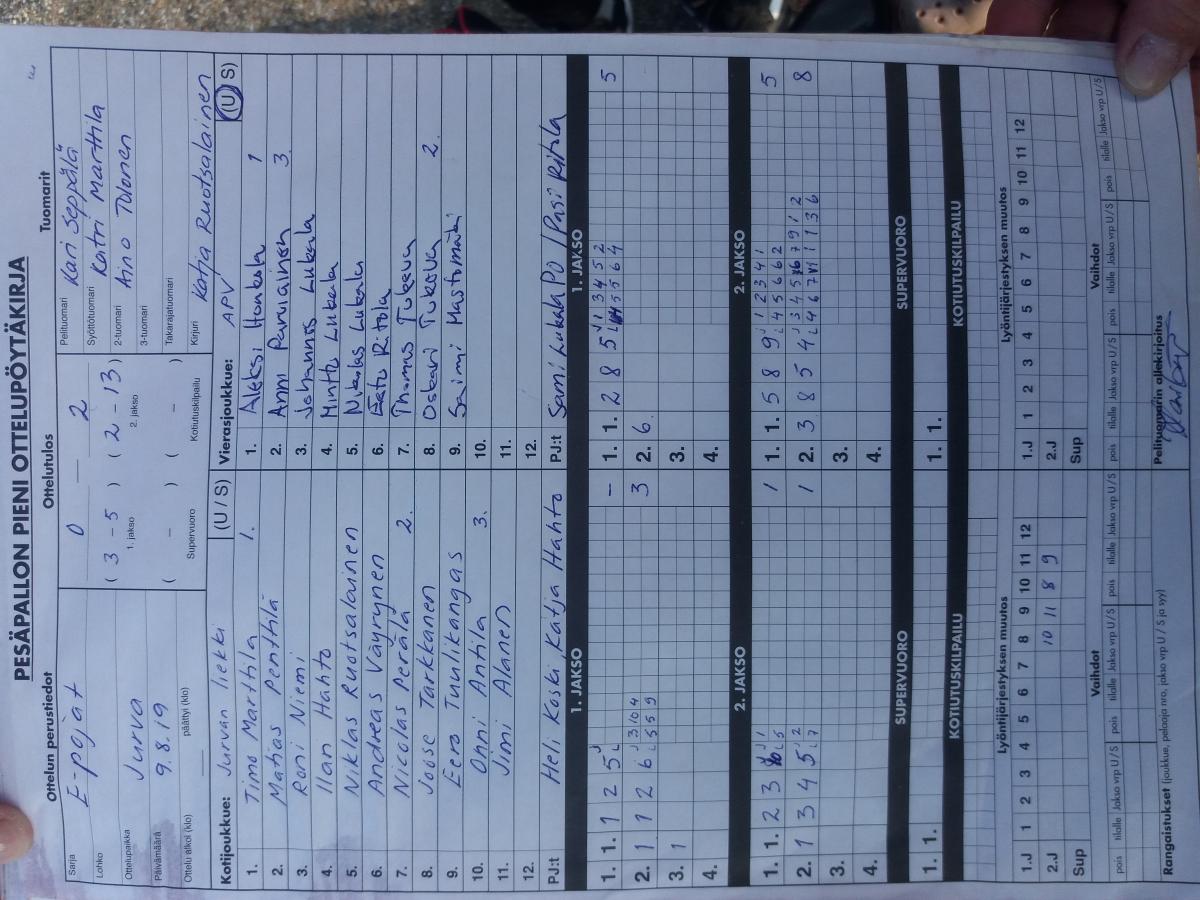 PESÄPALLON PIENI OTTELUPÖYTÄKIRJA
Ottelun perustiedot
Ottelutulos
Tuomarit
Sarja E-pojat
Lohko
Ottelupaikka Jurva
Päivämäärä 9.8.19
Ottelu alkoi (klo) päättyi (klo)
0 — 2
( 3 - 5 ) ( 2 - 13 )
1. jakso 2. jakso
( – ) ( – )
Supervuoro Kotiutuskilpailu
Pelituomari Kari Seppälä
Syöttötuomari Katri Marttila
2-tuomari Aino Tolonen
3-tuomari
Takarajatuomari
Kirjuri Katja Ruotsalainen
Kotijoukkue: Jurvan liekki (U / S)
1. Timo Marttila 1.
2. Matias Penttilä
3. Roni Niemi
4. Ilan Hahto
5. Niklas Ruotsalainen
6. Andreas Väyrynen
7. Nicolas Perälä 2.
8. Joose Tarkkanen
9. Eero Tuulikangas
10. Onni Antila 3.
11. Jimi Alanen
12.
PJ:t Heli Koski, Katja Hahto
Vierasjoukkue: APV (U/ S)
1. Aleksi Honkola 1
2. Anni Parviainen 3.
3. Johannes Lukkala
4. Minttu Lukkala
5. Nikolas Lukkala
6. Eetu Ritola
7. Thomas Tukeva
8. Oskari Tukeva 2.
9. Saimi Mastomäki
10.
11.
12.
PJ:t Sami Lukkala PO / Pasi Ritola
1. JAKSO
1. 1. 1 2 5 –
2. 1 1 2 6 3
3. 1
4.
1. JAKSO
1. 1. 2 8 5 5
2. 6.
3.
4.
2. JAKSO
1. 1. 2 3 1
2. 1 3 4 5 1
3.
4.
2. JAKSO
1. 1. 5 8 9 5
2. 3 8 5 4 8
3.
4.
SUPERVUORO
1. 1.
SUPERVUORO
1. 1.
KOTIUTUSKILPAILU
KOTIUTUSKILPAILU
Lyöntijärjestyksen muutos
1.J 1 2 3 4 5 6 7 8 9 10 11 12
2.J 10 11 8 9
Sup
Lyöntijärjestyksen muutos
1.J 1 2 3 4 5 6 7 8 9 10 11 12
2.J
Sup
Vaihdot
pois tilalle Jakso vrp U/S pois tilalle Jakso vrp U/S pois tilalle Jakso vrp U/S
Vaihdot
pois tilalle Jakso vrp U/S pois tilalle Jakso vrp U/S pois tilalle Jakso vrp U/S
Rangaistukset (joukkue, pelaaja nro, jakso vrp U / S ja syy)
Pelituomarin allekirjoitus